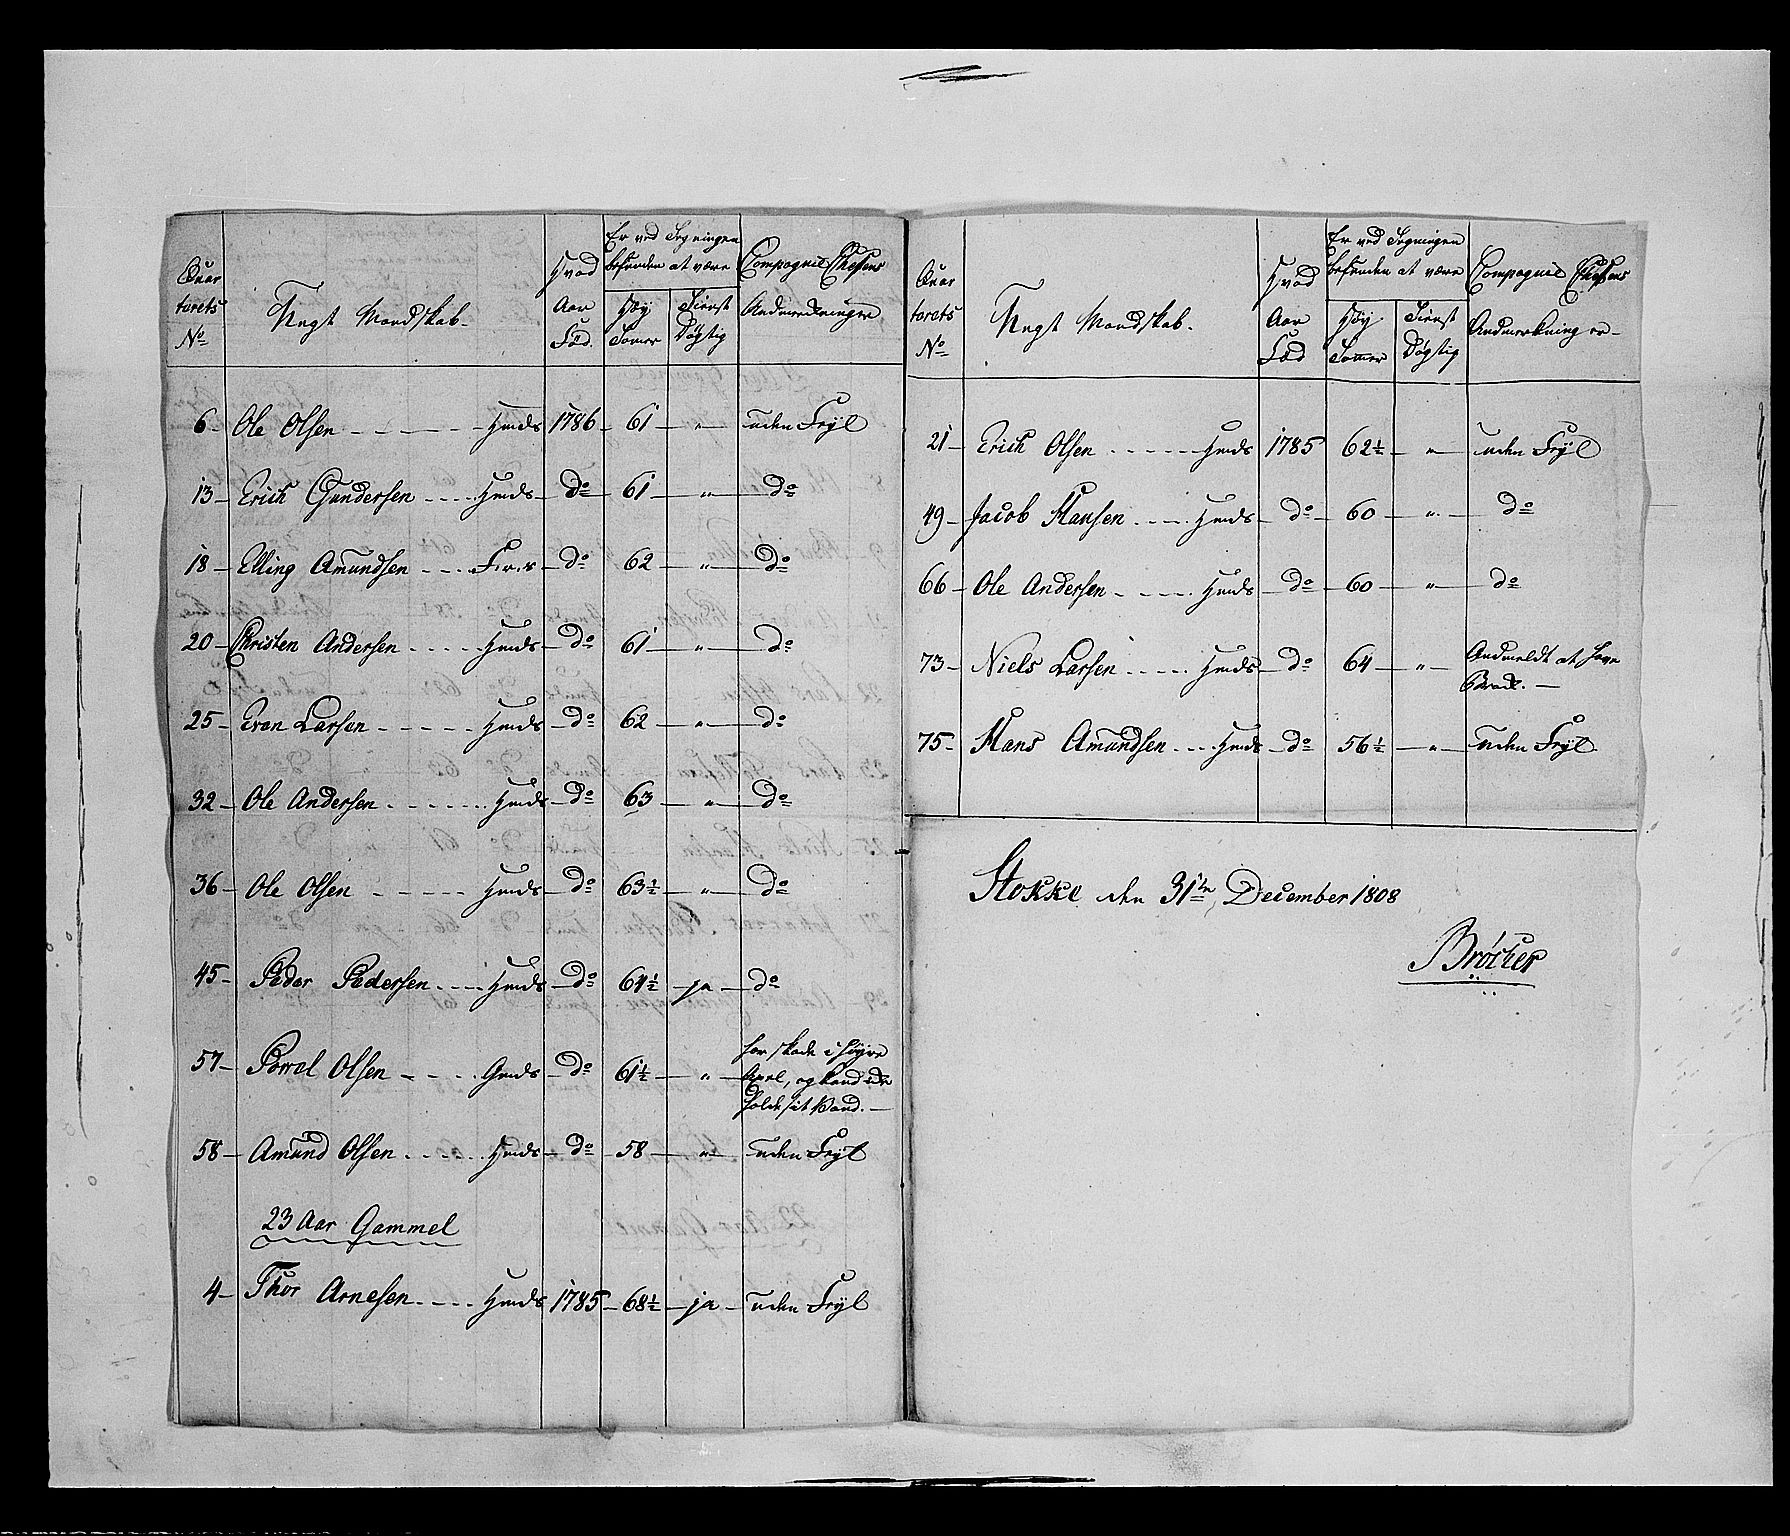 Qvar
torets
No
Ungt Mandskab.
Hvad
Aar
Fød.
Er ved Sogningen
befunden at være
Høy
Tomer
Tienst
Døgtig
Compagnie Chefens
Andmerkninger
6 Ole Olsen Hmds 1786 61 " uden Feyl
13 Erich Gundersen Hmds do 61 " do
18 Elling Amundsen do 62 " do
20 Christen Andersen Hmds do 61 " do
25 Even Larsen Hmds do 62 " do
32 Ole Andersen Hmds do 63 " do
36 Ole Olsen Hmds do 63½ " do
45 Peder Pedersen Hmds do 64½ ja do
57 Powel Olsen Gmds do 61½ " har skade i høyre
og kand ikke
holde sit Vand.
58 Amund Olsen Hmds do 58 " uden Feyl
23 Aar Gammel
4 Thor Arnesen Hmds 1785 68½ ja uden Feyl
Qvar
torets
No
Ungt Mandskab.
Hvad
Aar
Fød
Er ved Sogningen
befunden at være
Høy
Tomer
Tienst
Døgtig
Compagnie Chefens
Andmerkninger
21 Erich Olsen Hmds 1785 62½ " uden Feyl
49 Jacob Hansen Hmds do 60 " do
66 Ole Andersen Hmds do 60 " do
73 Niels Larsen Hmds do 64 " Andmeldt at have
Brok.
75 Hans Amundsen Hmds do 56½ " uden Feyl
Stokke den 31te December 1808
Bröcker